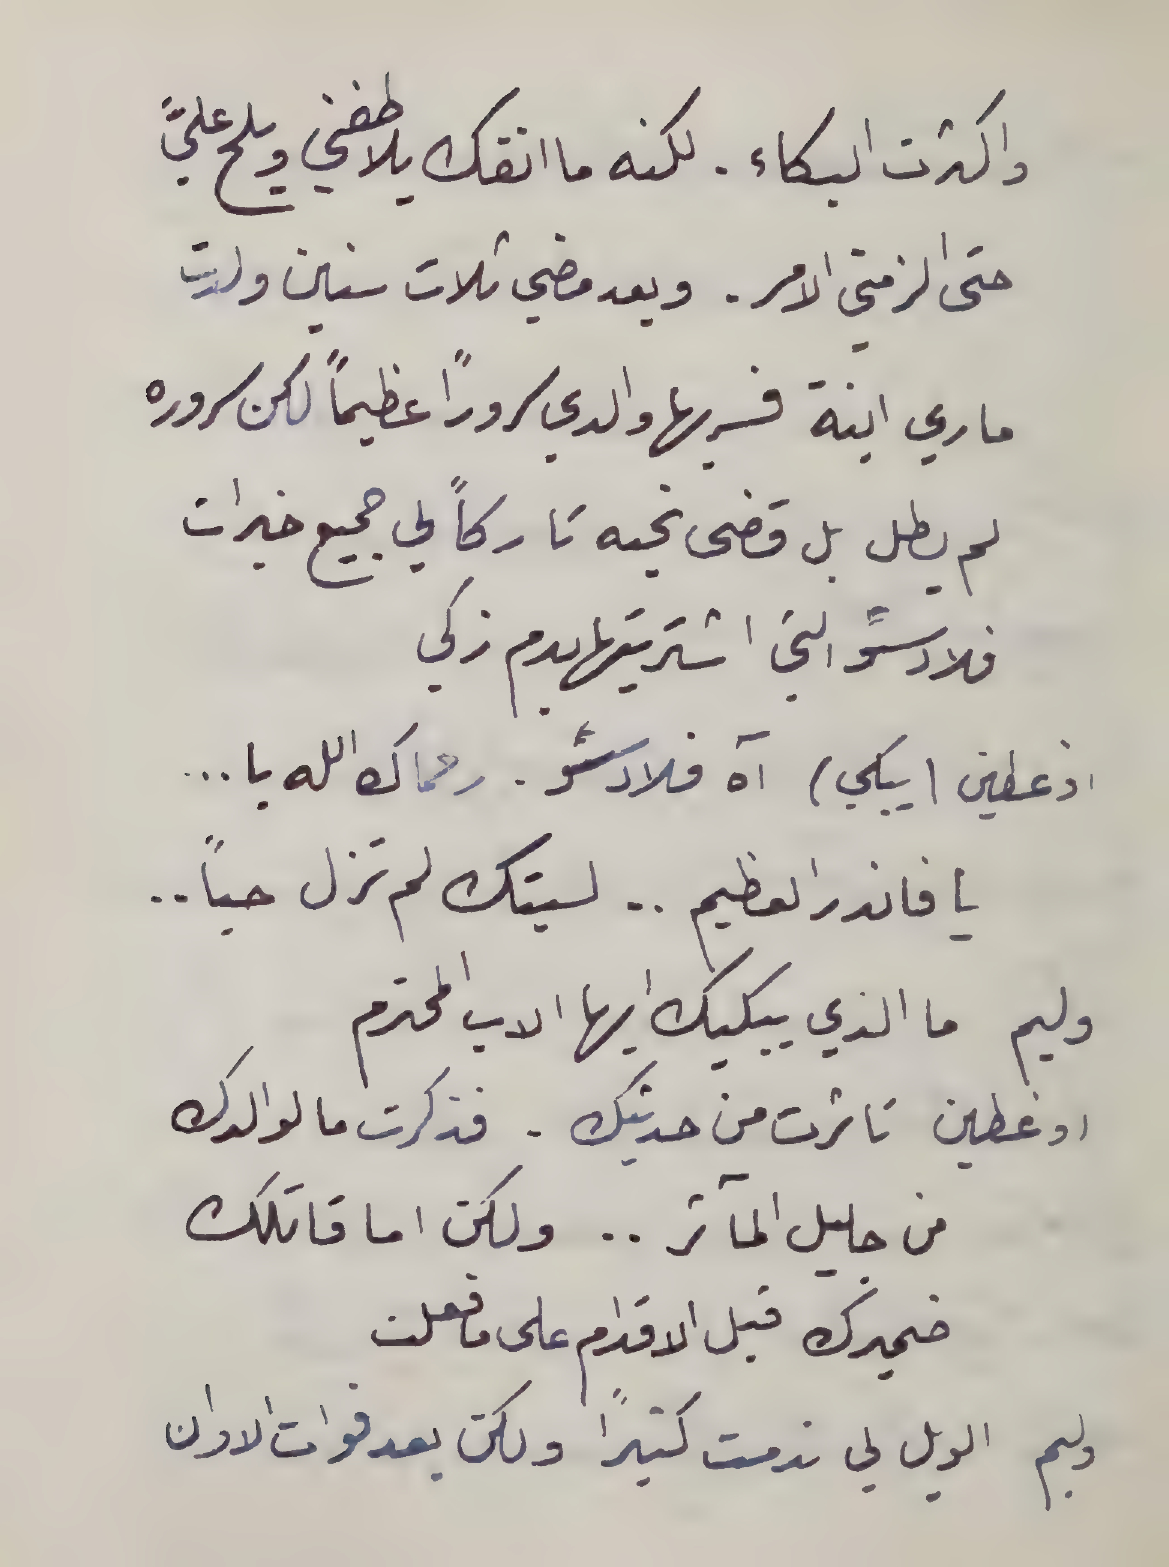 واكثرت البكاء . لكنه ما انفك يلاطفني ويلح عليَّ
حتى الزمني الامر . وبعد مضي ثلاث سنين ولدت
ماري ابنة فسر بها والدي سرورًا عظيماً لكن سروره
لم يطل بل قضى نحبه تاركاً لي جميع خيرات
فلادستو التي اشتريتها بدم زكي
اوغطين (يبكي) آه فلادستو . رحماك الله يا ...
يا فاندر العظيم .. ليتك لم تزل حياً ..
وليم ما الذي يبكيك ايها الاب المحترم
اوغطين تاثرت من حديثك . فذكرت ما لوالدك
من جليل المآثر .. ولكن اما قاتلك
ضميرك قبل الاقدام على ما فعلت
وليم الويل لي ندمت كثيرًا ولكن بعد فوات الاوان